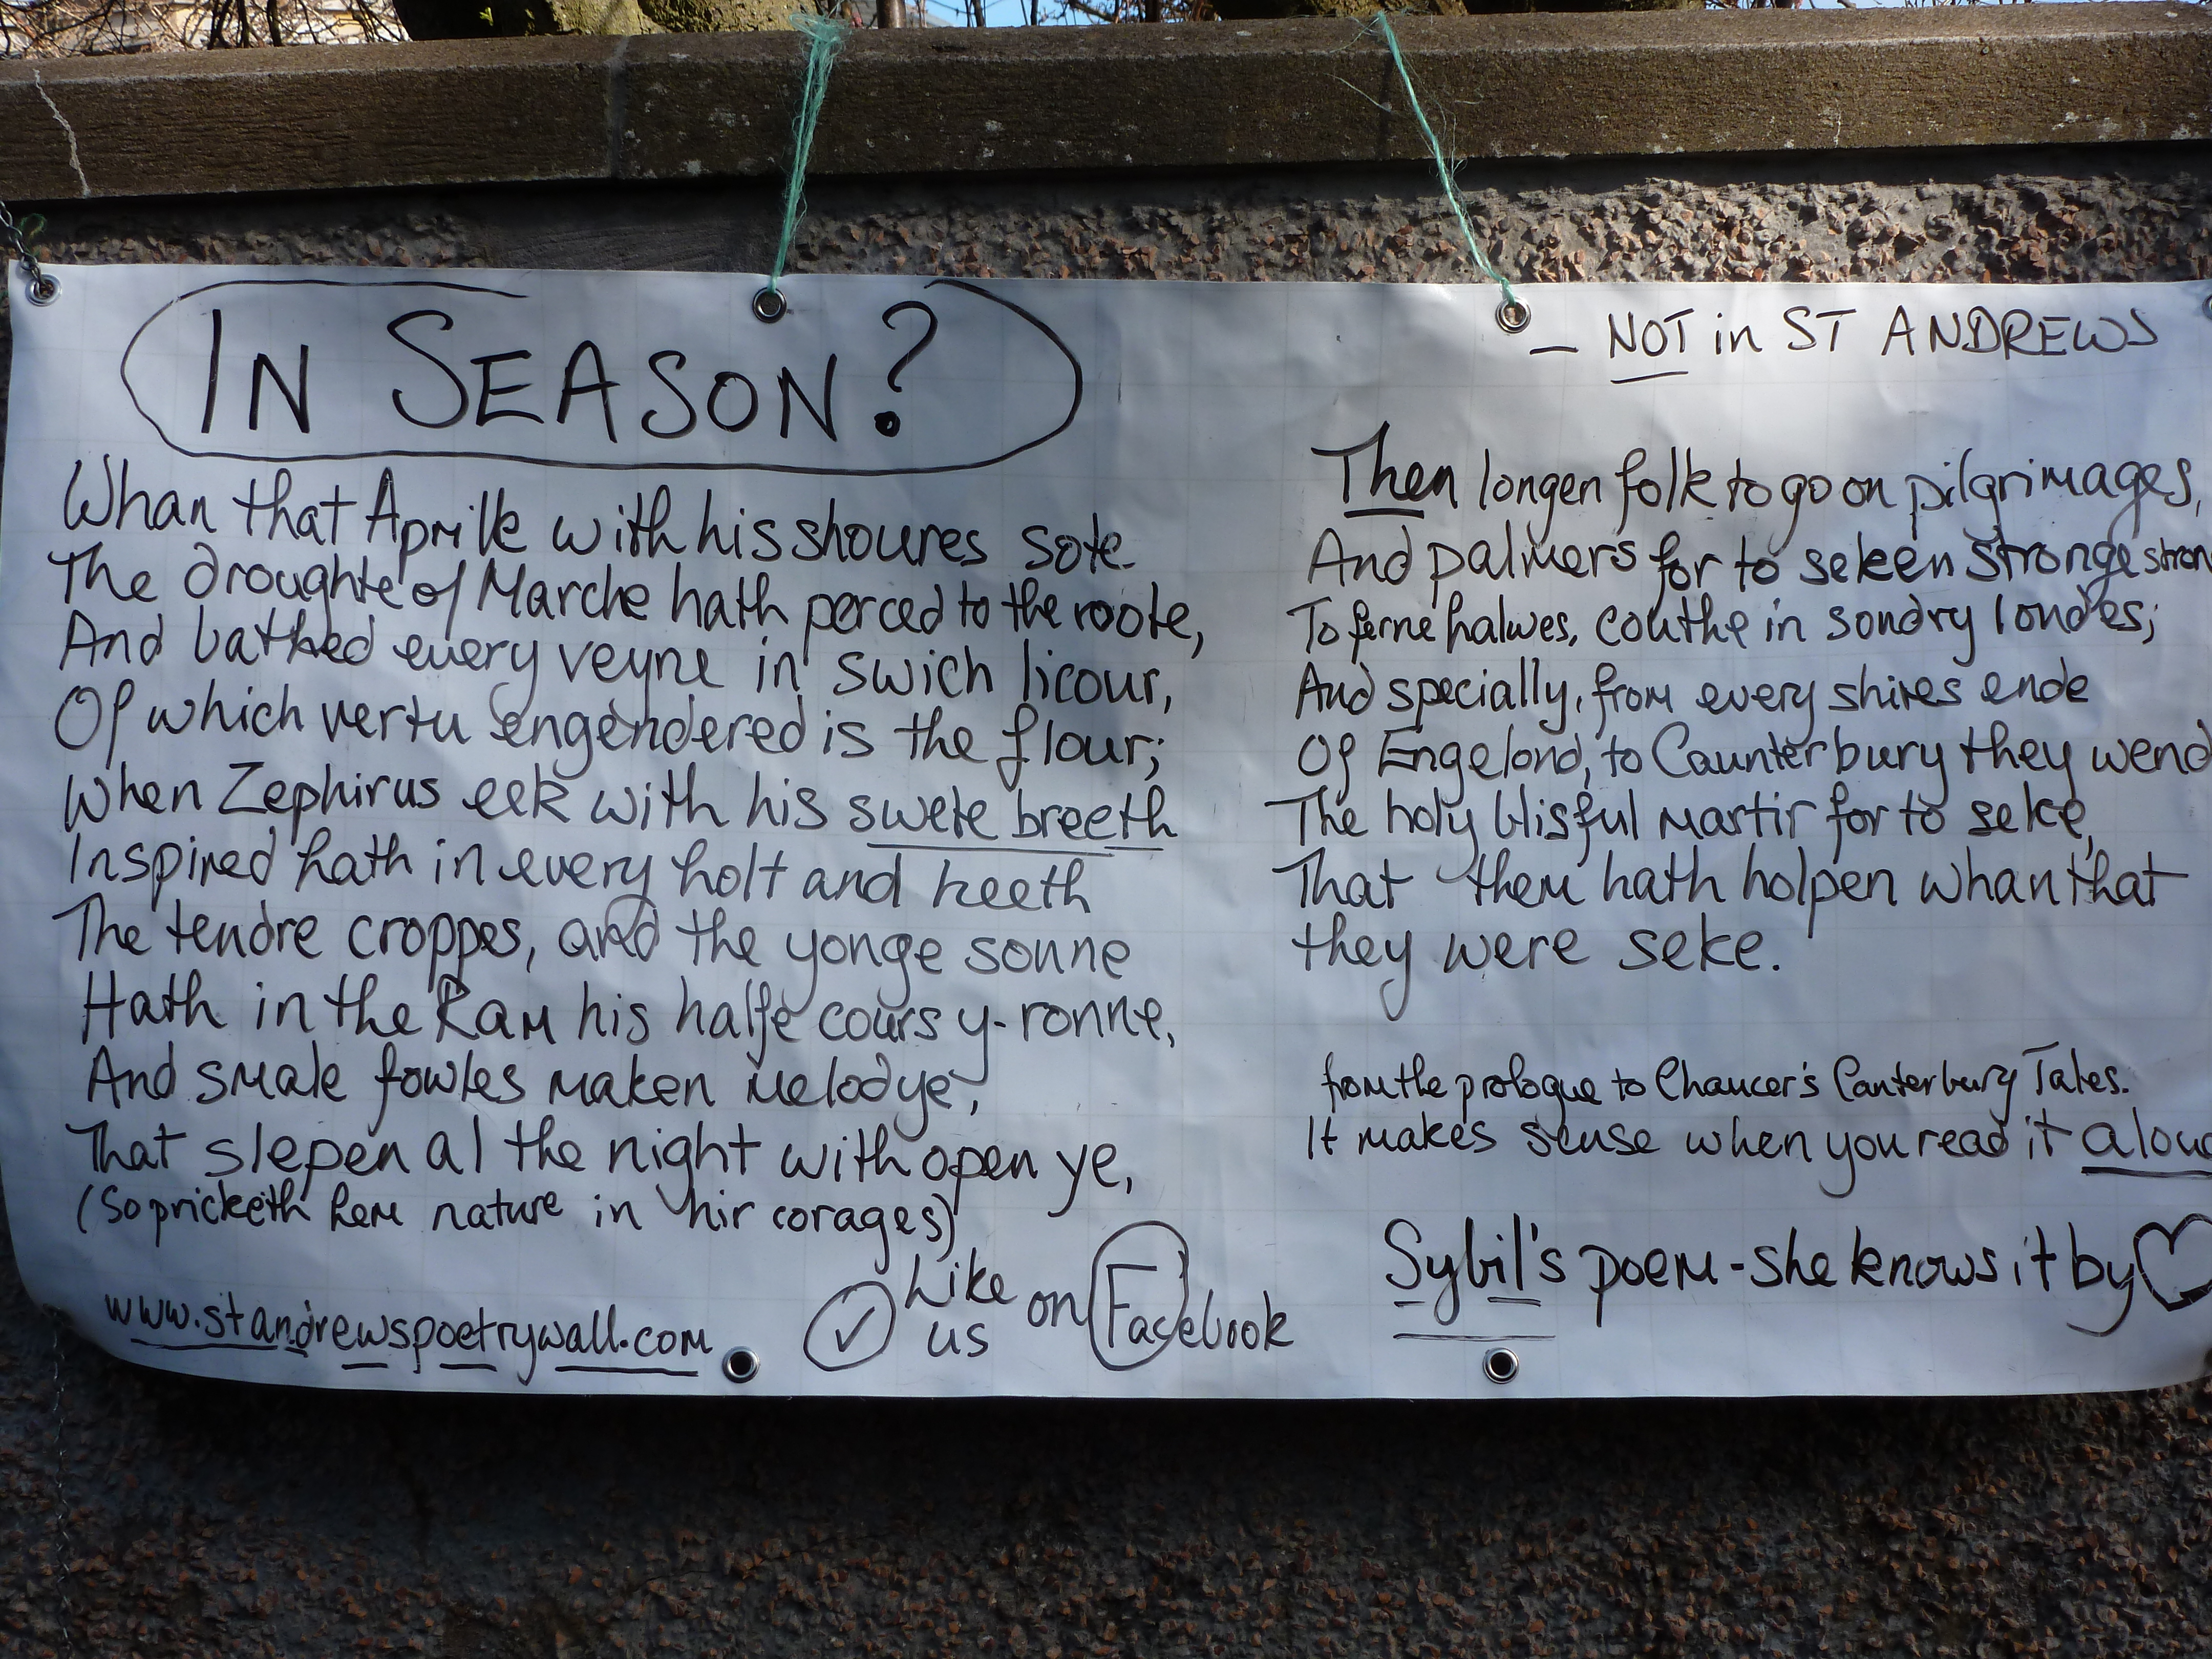 IN SEASON?
Whan that Aprille with his shoures sote
The droughte of Marche hath perced to the roote,
And bathed every veyne in swich licour,
Of which vertu engendered is the flour;
When Zephirus eek with his swete breeth
Inspired hath in every holt and heeth
The tendre croppes, and the yonge sonne
Hath in the Ram his halfe cours y-ronne,
And smale fowles maken melodye,
That slepen al the night with open ye,
(So pricketh hem nature in hir corages)
www.standrewspoetrywall.com
Like us on Facebook
— NOT in ST ANDREWS
Then longen folk to go on pilgrimages,
And palmers for to seken stronge stron
To ferne halwes, couthe in sondry londes;
And specially, from every shires ende
Of Engelond, to Caunterbury they wend
The holy blisful martir for to seke,
That them hath holpen whan that
they were seke.
from the prologue to Chaucer's Canterbury Tales.
It makes sense when you read it alou
Sybil's poem - she knows it by ♡